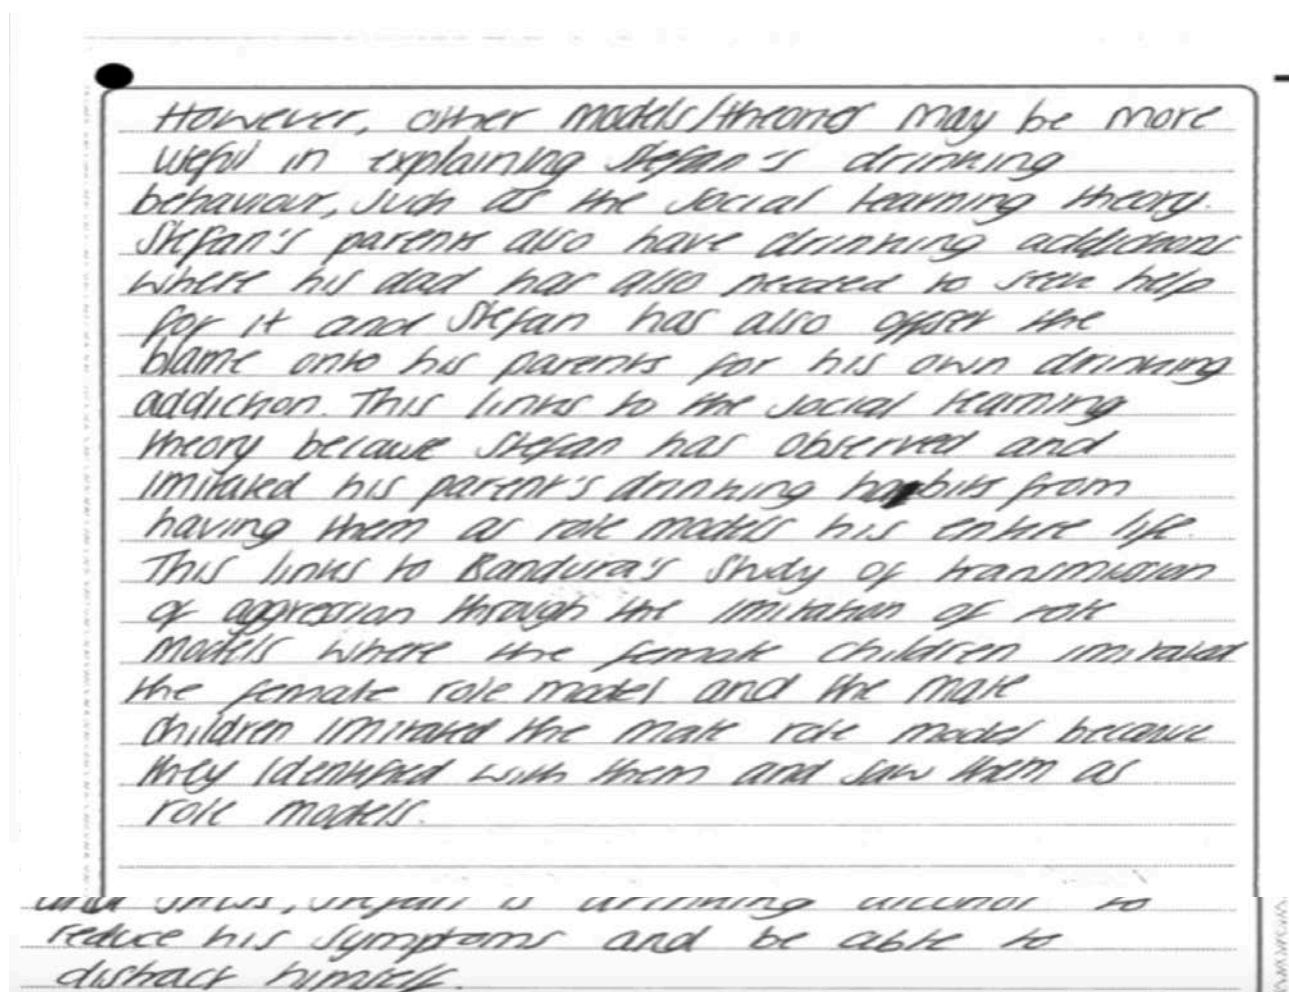 However, other models/theories may be more
useful in explaining Stefan's drinking
behaviour, such as the social learning theory.
Stefan's parents also have drinking addictions
where his dad has also needed to seek help
for it and Stefan has also offset the
blame onto his parents for his own drinking
addiction. This links to the social learning
theory because Stefan has observed and
imitated his parent's drinking habits from
having them as role models his entire life.
This links to Bandura's study of transmission
of aggression through the imitation of role
models where the female children imitated
the female role model and the male
children imitated the male role model because
they identified with them and saw them as
role models.
Stefan is drinking alcohol to
reduce his symptoms and be able to
distract himself.